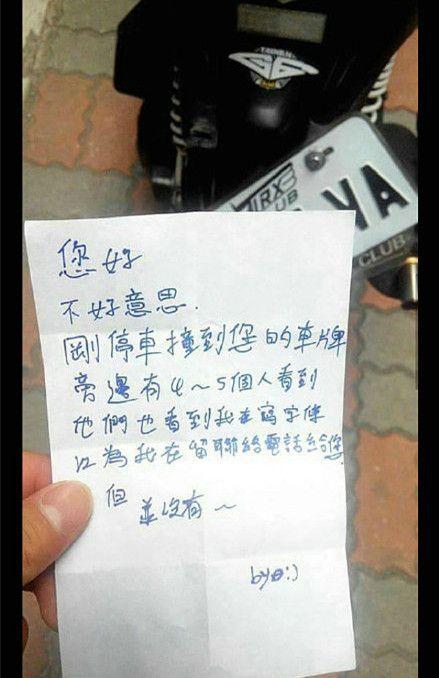 TAIWAN
TRX
CLUB
VA
CLUB
您好
不好意思.
剛停車撞到您的車牌
旁邊有4～5個人看到
他們也看到我在寫字條
以為我在留聯給電話給您
但
並沒有～
by
:)